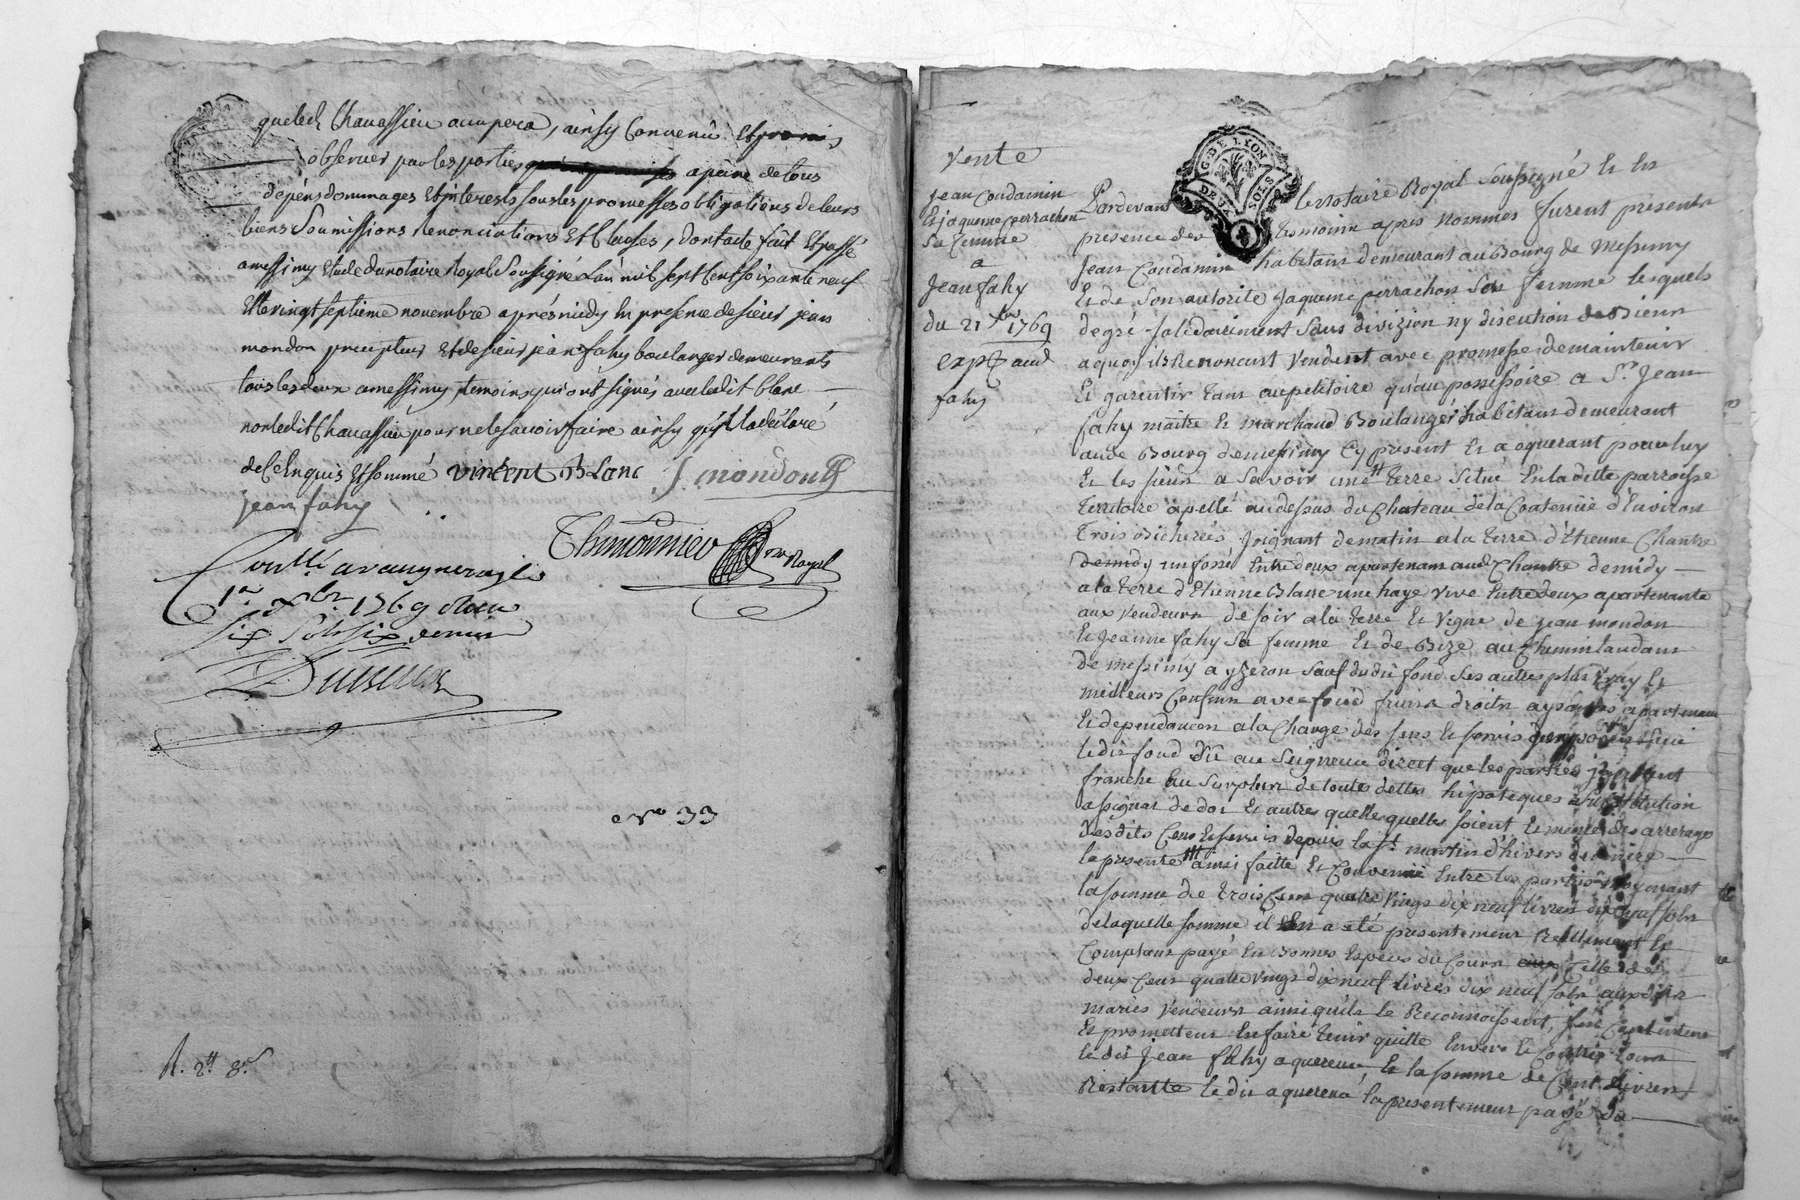 queledt Chavassieu occupera, ainsy Convenû
observer par les parties a peine de tous
depens dommages Et interests sous les promesses obligations de leurs
biens Soumissions Renonciations Et Clauses, dont acte fait Et passé
a messimy Etude du notaire Royal Soussigné L'an mil sept Cent soixante neuf
Et le vingt septieme novembre aprés midy En presence de sieur jean
mondon precepteur Et de sieur jean fahy boulanger demeurants
tous les deux a messimy temoins qui ont signés avec ledit blanc
non ledit Chavassieu pour ne le sçavoir faire ainsy qu'il l'a déclaré
de Ce Enquis Et sommé Vincent BLanc J mondon
jean fahy
Thimonnier nre Royal
Conllé a vaugneray le
1er Xbre 1769 Reçu
six sols six denier
No 33
R. 2tt 8s
Vente
jean Condamin
Et jaqueme perrachon
Sa femme
a
jean fahy
du 21 Xbre 1769
expt aud
fahy
G. DE LYON
DEUX SOLS
Pardevant le notaire Royal Soussigné Et En
presence des temoins apres nommés furent presents
jean Condamin habitant demeurant au Bourg de Messimy
Et de Son autorite jaqueme perrachon Son femme lesquels
de gré solidairement Sans divizion ny discution de Biens
a quoy ils Renoncent Vendent avec promesse de maintenir
Et garentir tant au petitoire qu'au possessoire a Sr jean
fahy maitre Et marchand Boulanger habitant demeurant
aude Bourg de messimy Cy present Et aquerant pour luy
Et les siens a Savoir une terre Situé En la ditte parroisse
territoire apellé au dessus du Chateau de la Contenüe d'Environ
Trois Bicherées joignant de matin a la terre d'Etienne Chantre
un fossé Entre deux apartenant audt Chantre de midy
a la terre d'Etienne Blanc une haye vive Entre deux apartenante
aux Vendeurs de soir a la terre Et Vigne de jean mondon
Et jeanne fahy Sa femme Et de Bize au Chemin tandant
de messimy a yzeron Sauf dudit fond Ses autres plus vray Et
meilleurs Confins avec fond fruits droits aysances apartenances
Et dependances a la Charge des Sens Et servis
ledit fond Dû au Seigneur direct que les parties
franche Au Surplus de toute dettes hipoteques Substitution
assignat de dot Et autres quelles quelles soient Et même des arrerages
desdits Cens Et servis depuis la St martin d'hivers derniere
la presente ainsi faitte Et Convenüe Entre les parties moyenant
la somme de trois Cent quatre vingt dix neuf livres dix neuf sols
de laquelle somme il En a eté presentement Rellement Et
Comptant payé En Bonnes Especes du Cours Celle de
deux Cent quatre vingt dix neuf livres dix neuf sols auxdits
mariés Vendeurs ainsi qu'ils le Reconnoissent, s'En Contentent
Et promettent En faire tenir quitte Envers Et Contre tous
ledit jean fahy aquereur, Et la somme de Cent livres
Restante ledit aquereur la presentement payé